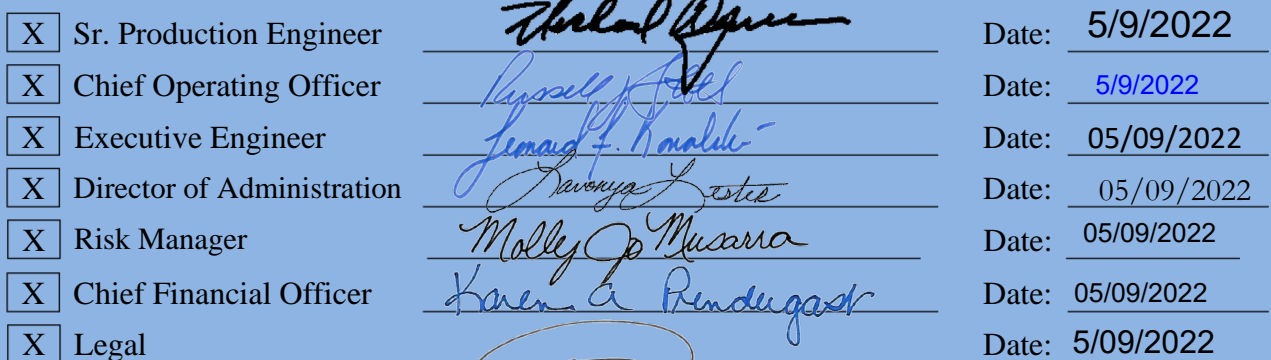 X Sr. Production Engineer Date: 5/9/2022
X Chief Operating Officer Russell Date: 5/9/2022
X Executive Engineer Date: 05/09/2022
X Director of Administration Lavonya Estes Date: 05/09/2022
X Risk Manager Molly Jo Musarra Date: 05/09/2022
X Chief Financial Officer Karen A Prendergast Date: 05/09/2022
X Legal Date: 5/09/2022